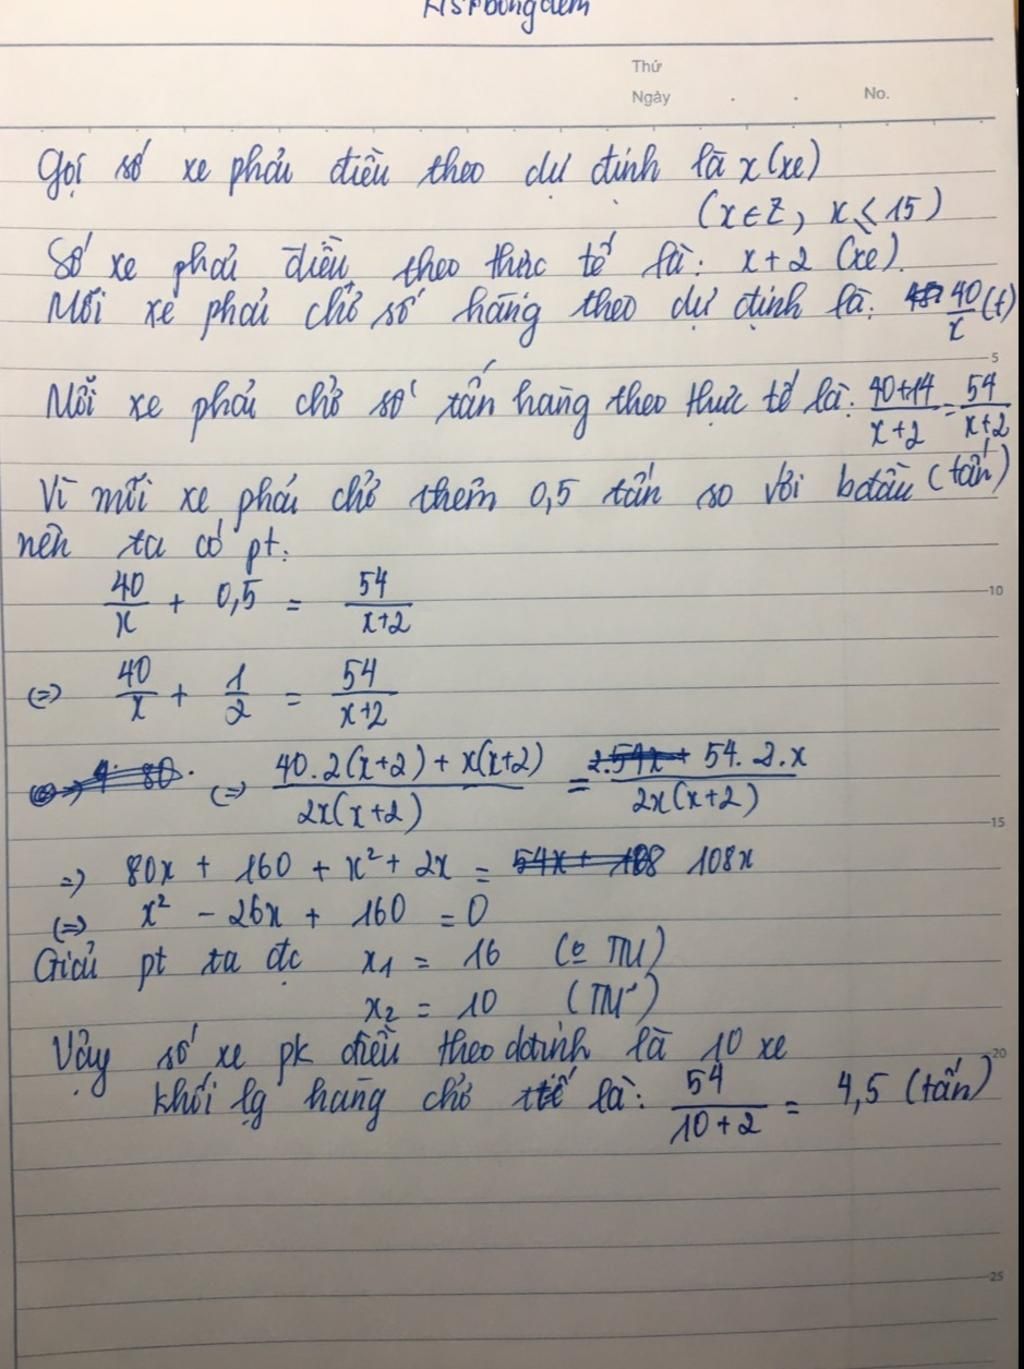 Thứ
Ngày . . No.
Gọi số xe phải điều theo dự định là x (xe)
(x ∈ Z, x ≤ 15)
Số xe phải điều theo thực tế là: x + 2 (xe).
Mỗi xe phải chở số hàng theo dự định là: 40/x (t)
5
Mỗi xe phải chở số tấn hàng theo thực tế là: 40+14/x+2 = 54/x+2
Vì mỗi xe phải chở thêm 0,5 tấn so với bđầu (tấn)
nên ta có pt:
40/x + 0,5 = 54/x+2
10
(=) 40/x + 1/2 = 54/x+2
(=) 40.2(x+2) + x(x+2)/2x(x+2) = 54.2.x/2x(x+2)
15
=) 80x + 160 + x² + 2x = 108x
(=) x² - 26x + 160 = 0
Giải pt ta đc x₁ = 16 (o TM)
x₂ = 10 (TM)
Vậy số xe pk điều theo dđịnh là 10 xe
20
khối lg hàng chở ttế là: 54/10+2 = 4,5 (tấn)
25